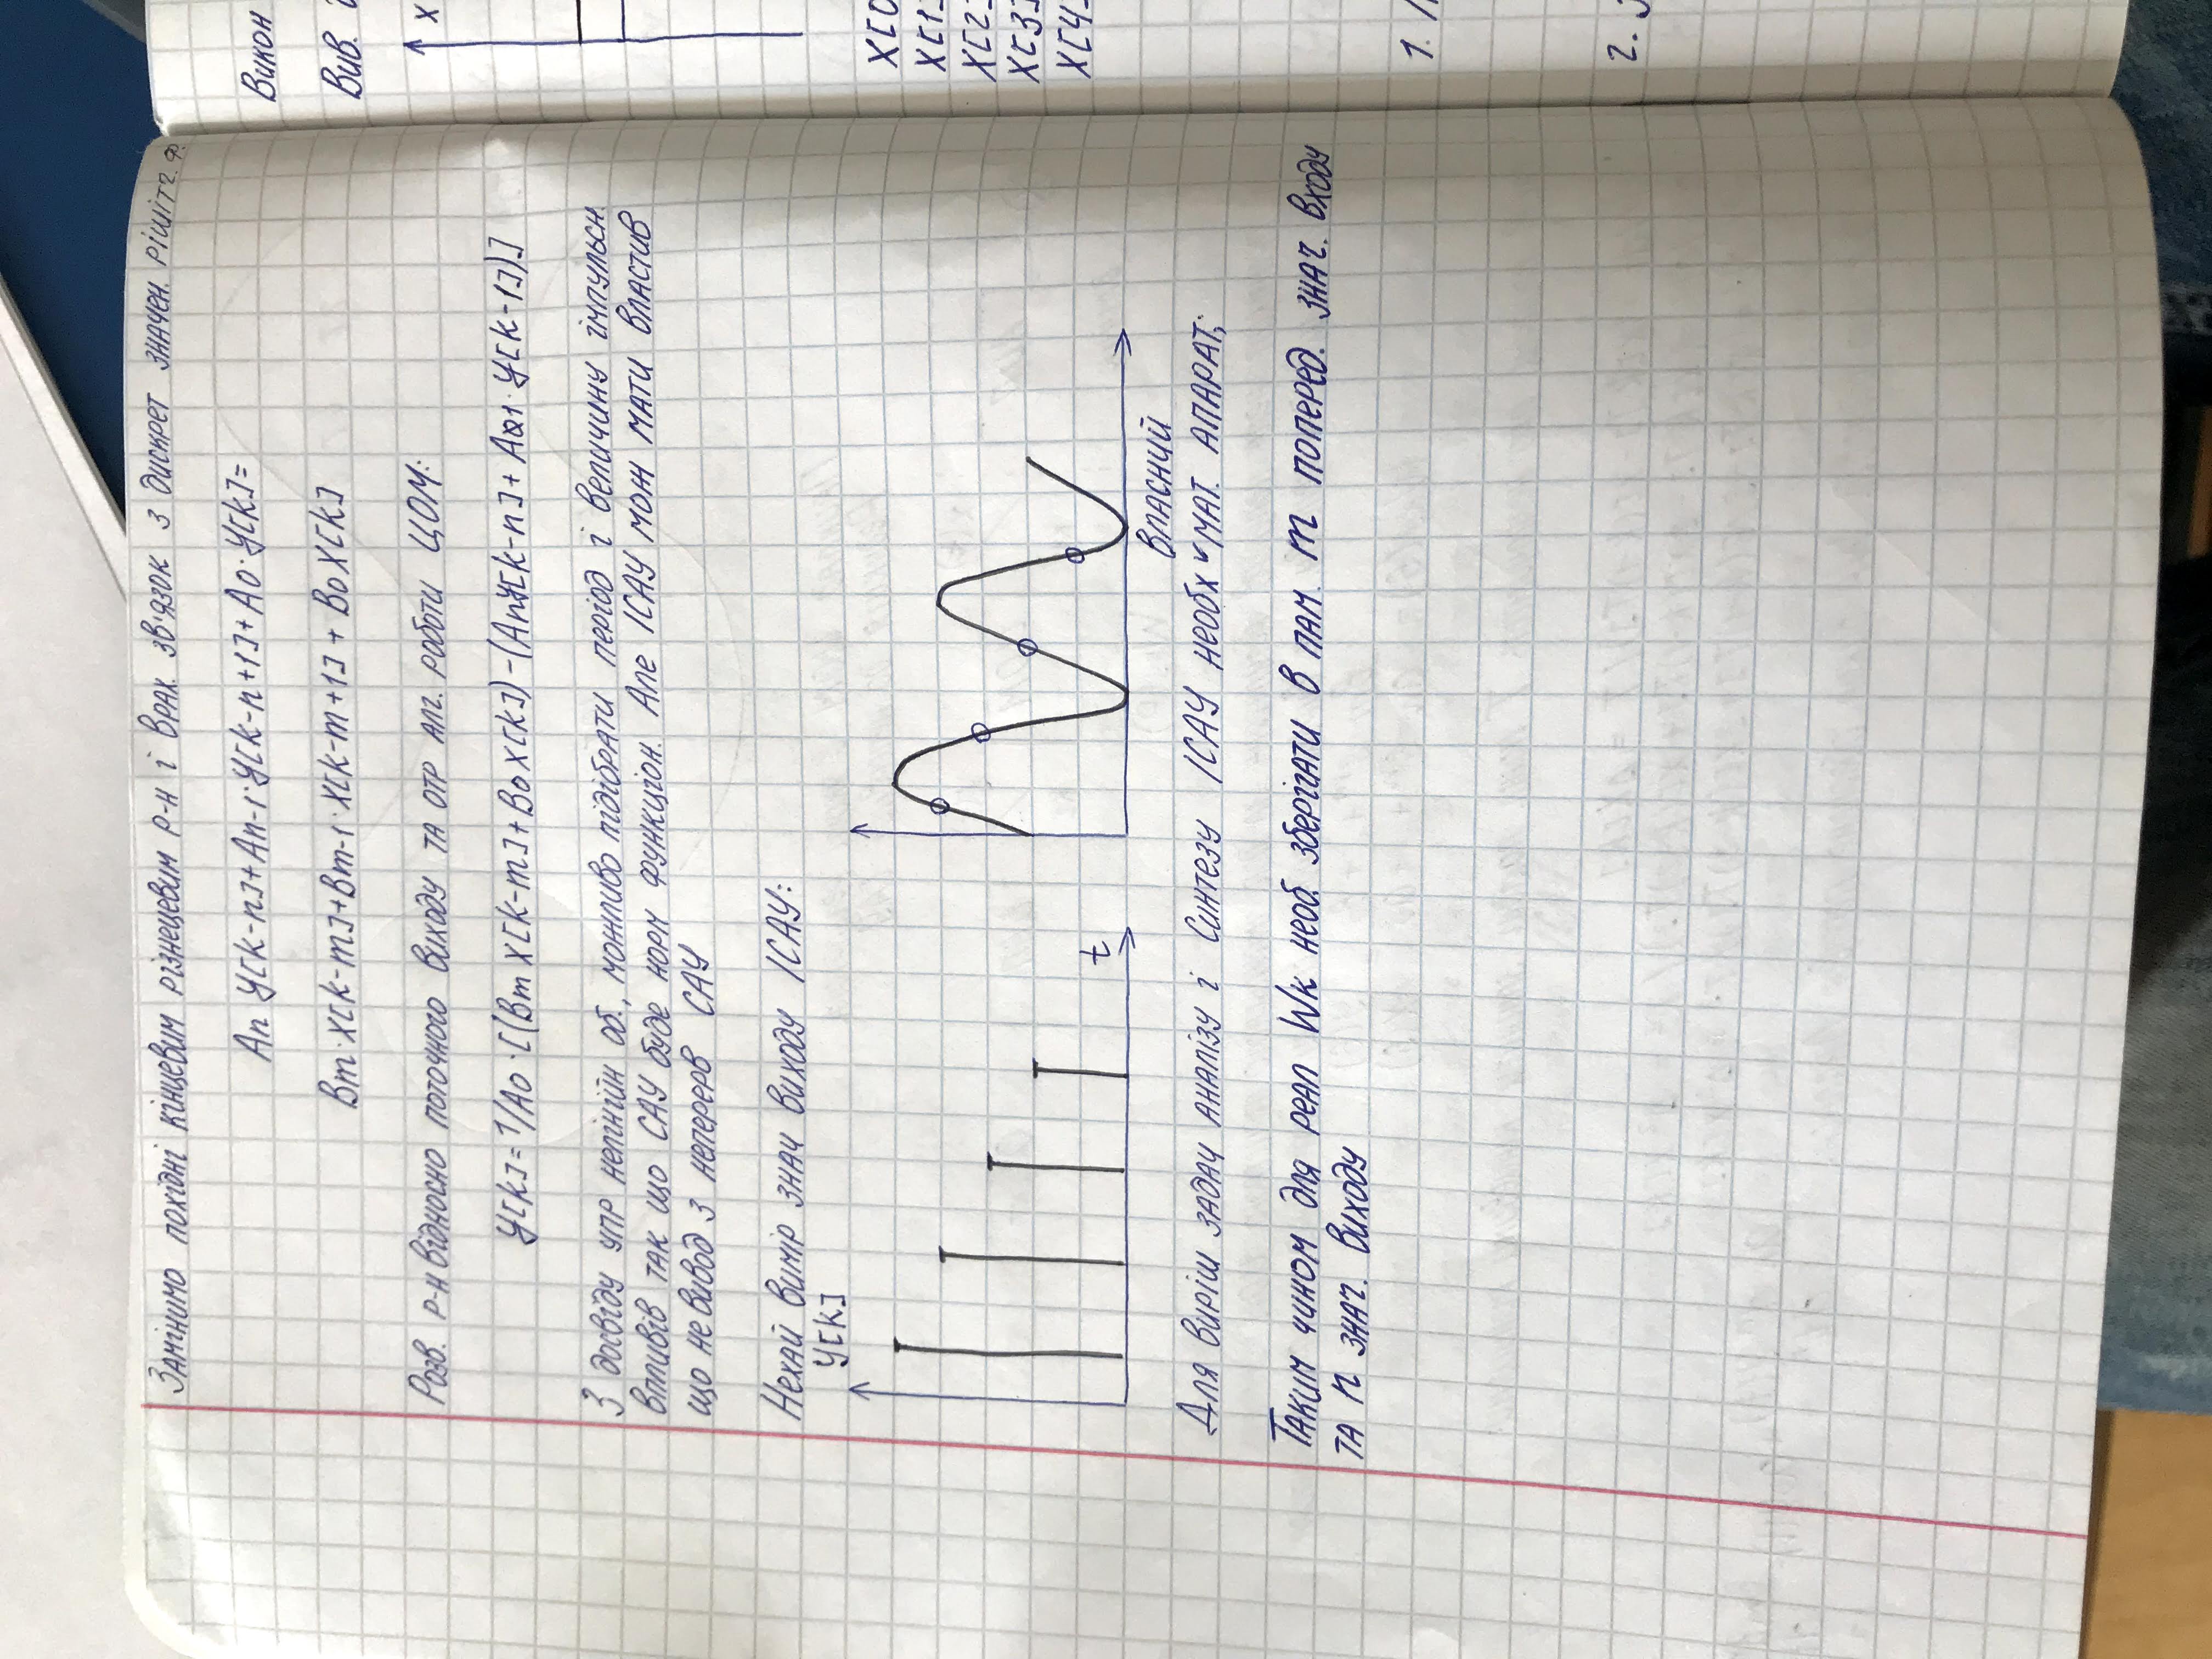 Замінимо похідні кінцевим різнецевим р-н і врах. зв'язок з дискрет значен. рішітч. ф.
An Y[k-n]+An-1·Y[k-n+1]+A0·Y[k]=
Bm·X[k-m]+Bm-1·X[k-m+1]+B0X[k]
Розв. р-н відносно поточного виходу та отр алг. роботи ЦОМ:
Y[k]=1/A0·[(BmX[k-m]+B0X[k])-(AnY[k-n]+A1·Y[k-1])]
З досвіду упр нелінійн об., можливо підібрати період і величину імпульсн.
впливів так що САУ буде норм функціон. Але ІСАУ мож мати властив
що не вивод з неперерв САУ
Нехай вимір знач виходу ІСАУ:
Y[k]
t
власний
Для виріш задач аналізу і синтезу ІСАУ необх мат. апарат;
Таким чином для реал Wk необ. зберігати в пам. m поперед. знач. входу
та n знач. виходу
Викон
Вив.
X
X[0
X[1]
X[2]
X[3]
X[4
1.
2.